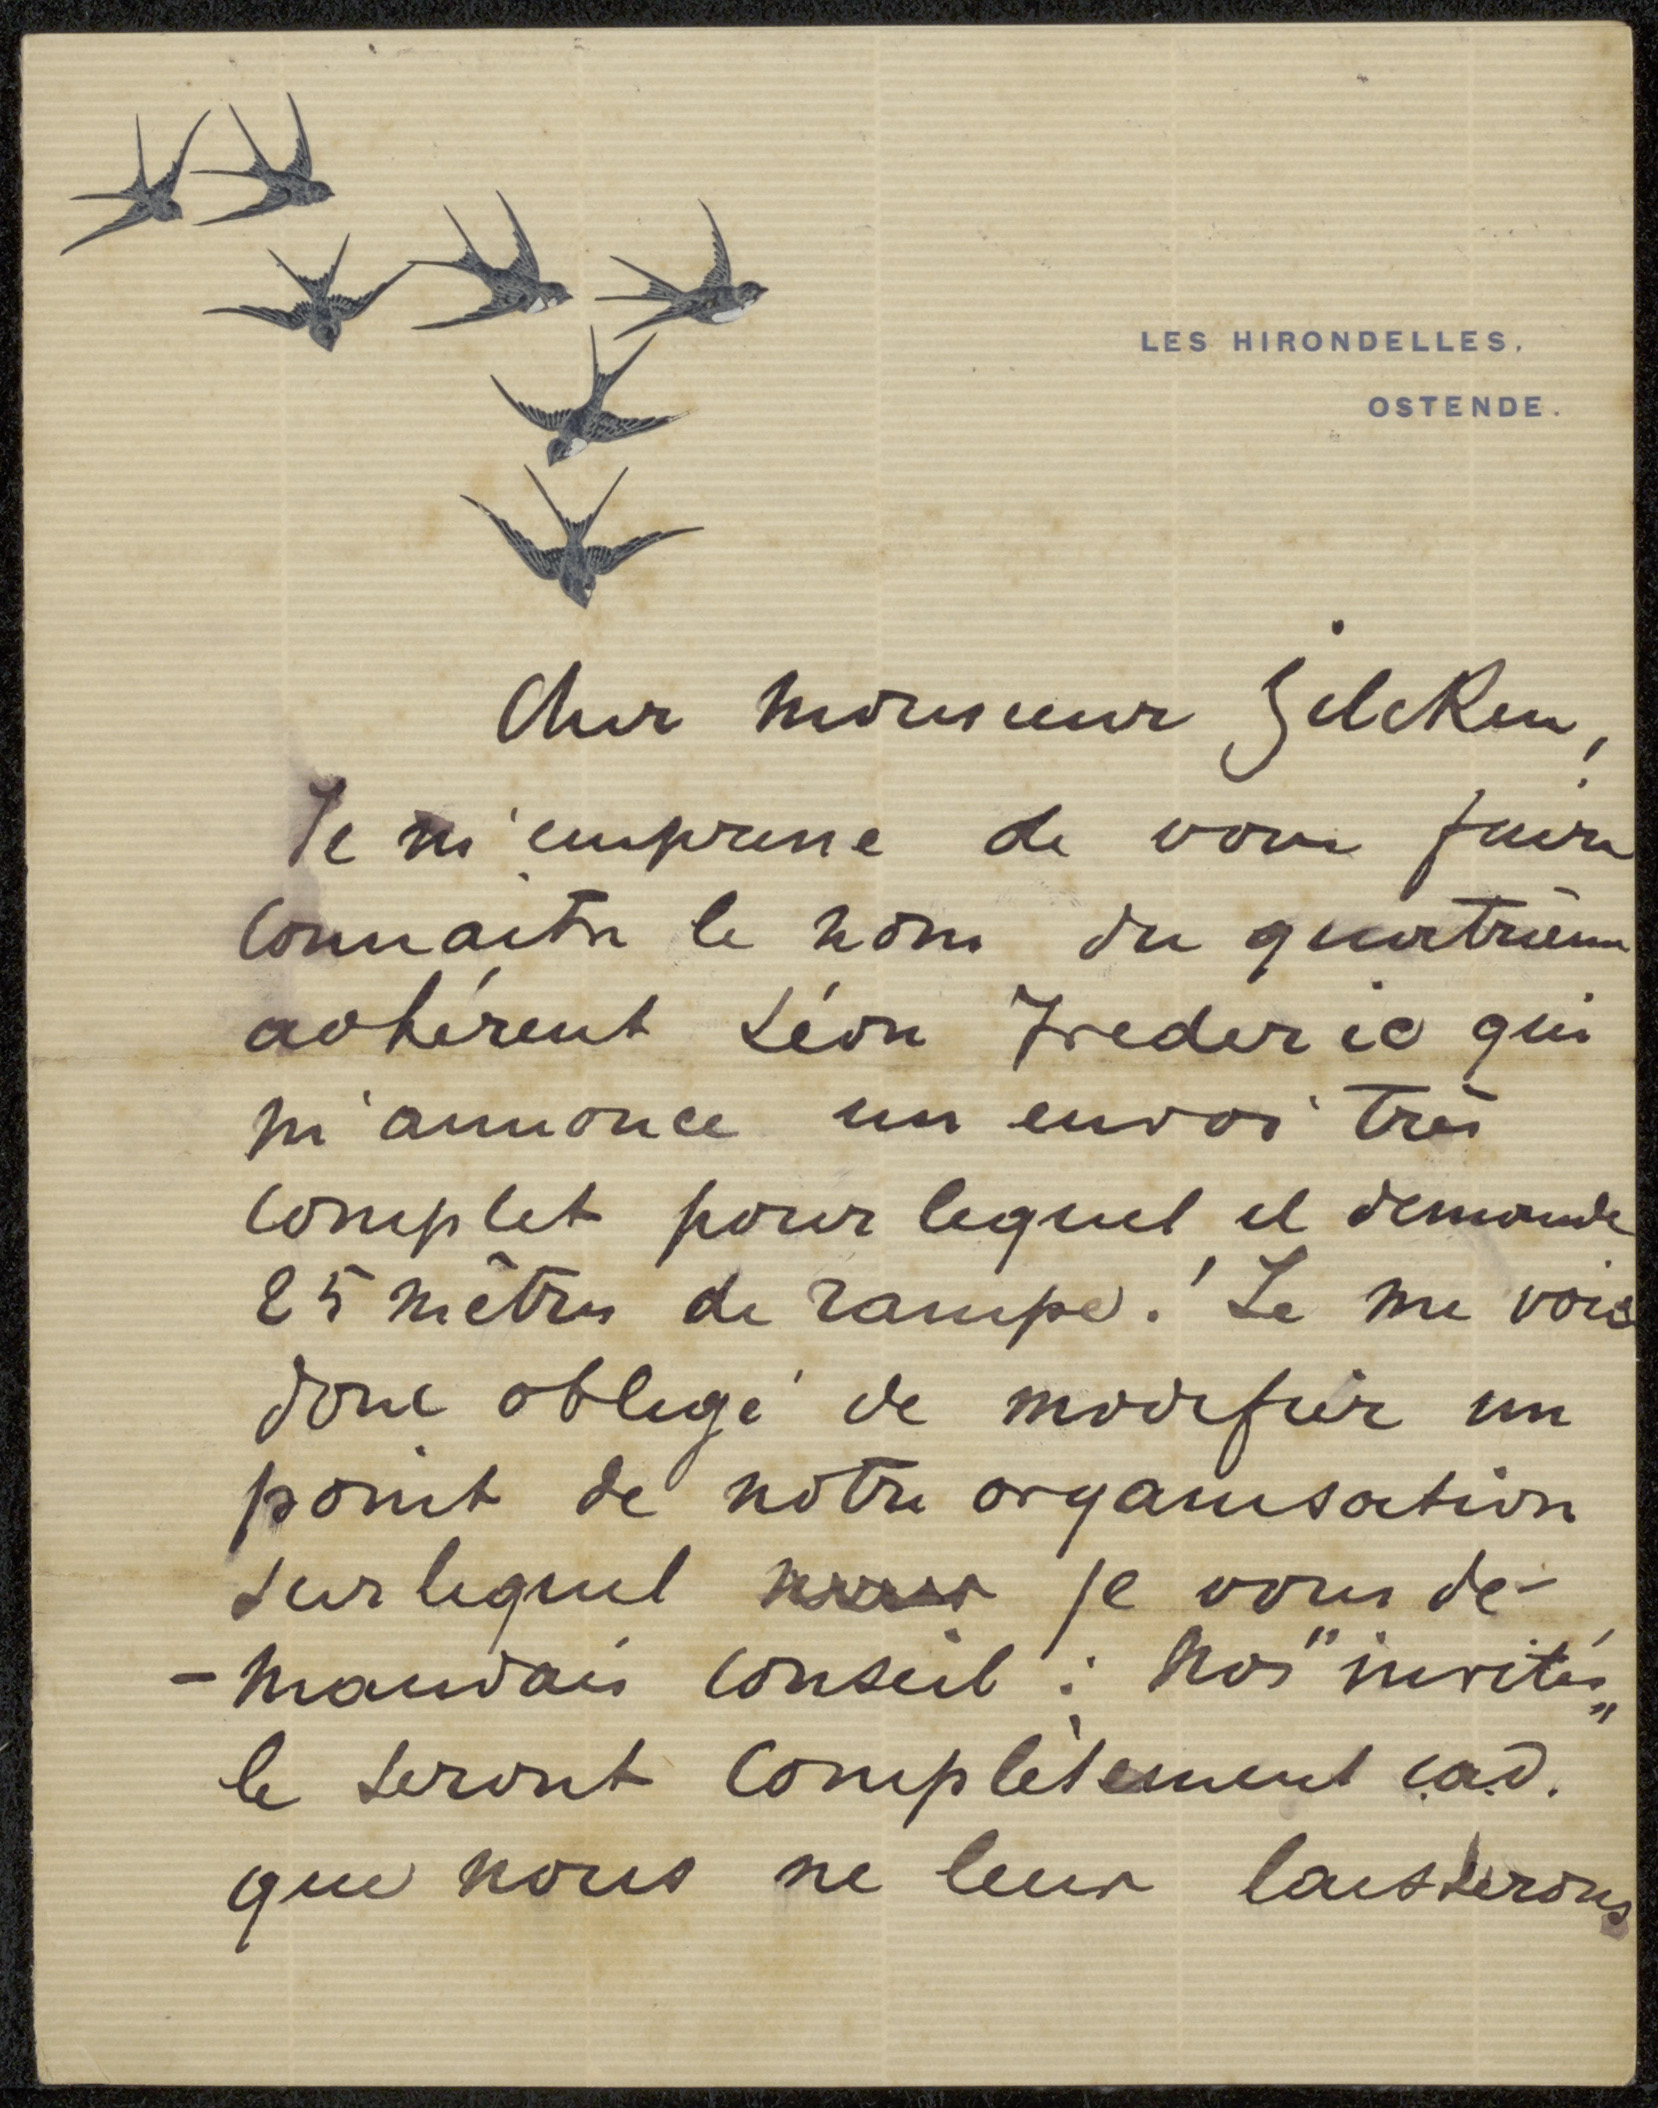 LES HIRONDELLES.
OSTENDE.
Cher Monsieur Zilcken,
Je m'empresse de vous faire
connaitre le nom du quatrième
adhérent Léon Frederic qui
m'annonce un envoi très
complet pour lequel il demande
25 mètres de rampe! Je me vois
donc obligé de modifier un
point de notre organisation
sur lequel je vous de-
-mandais conseil : Nos "invités"
le seront complètement c.a.d.
que nous ne leur laisserons